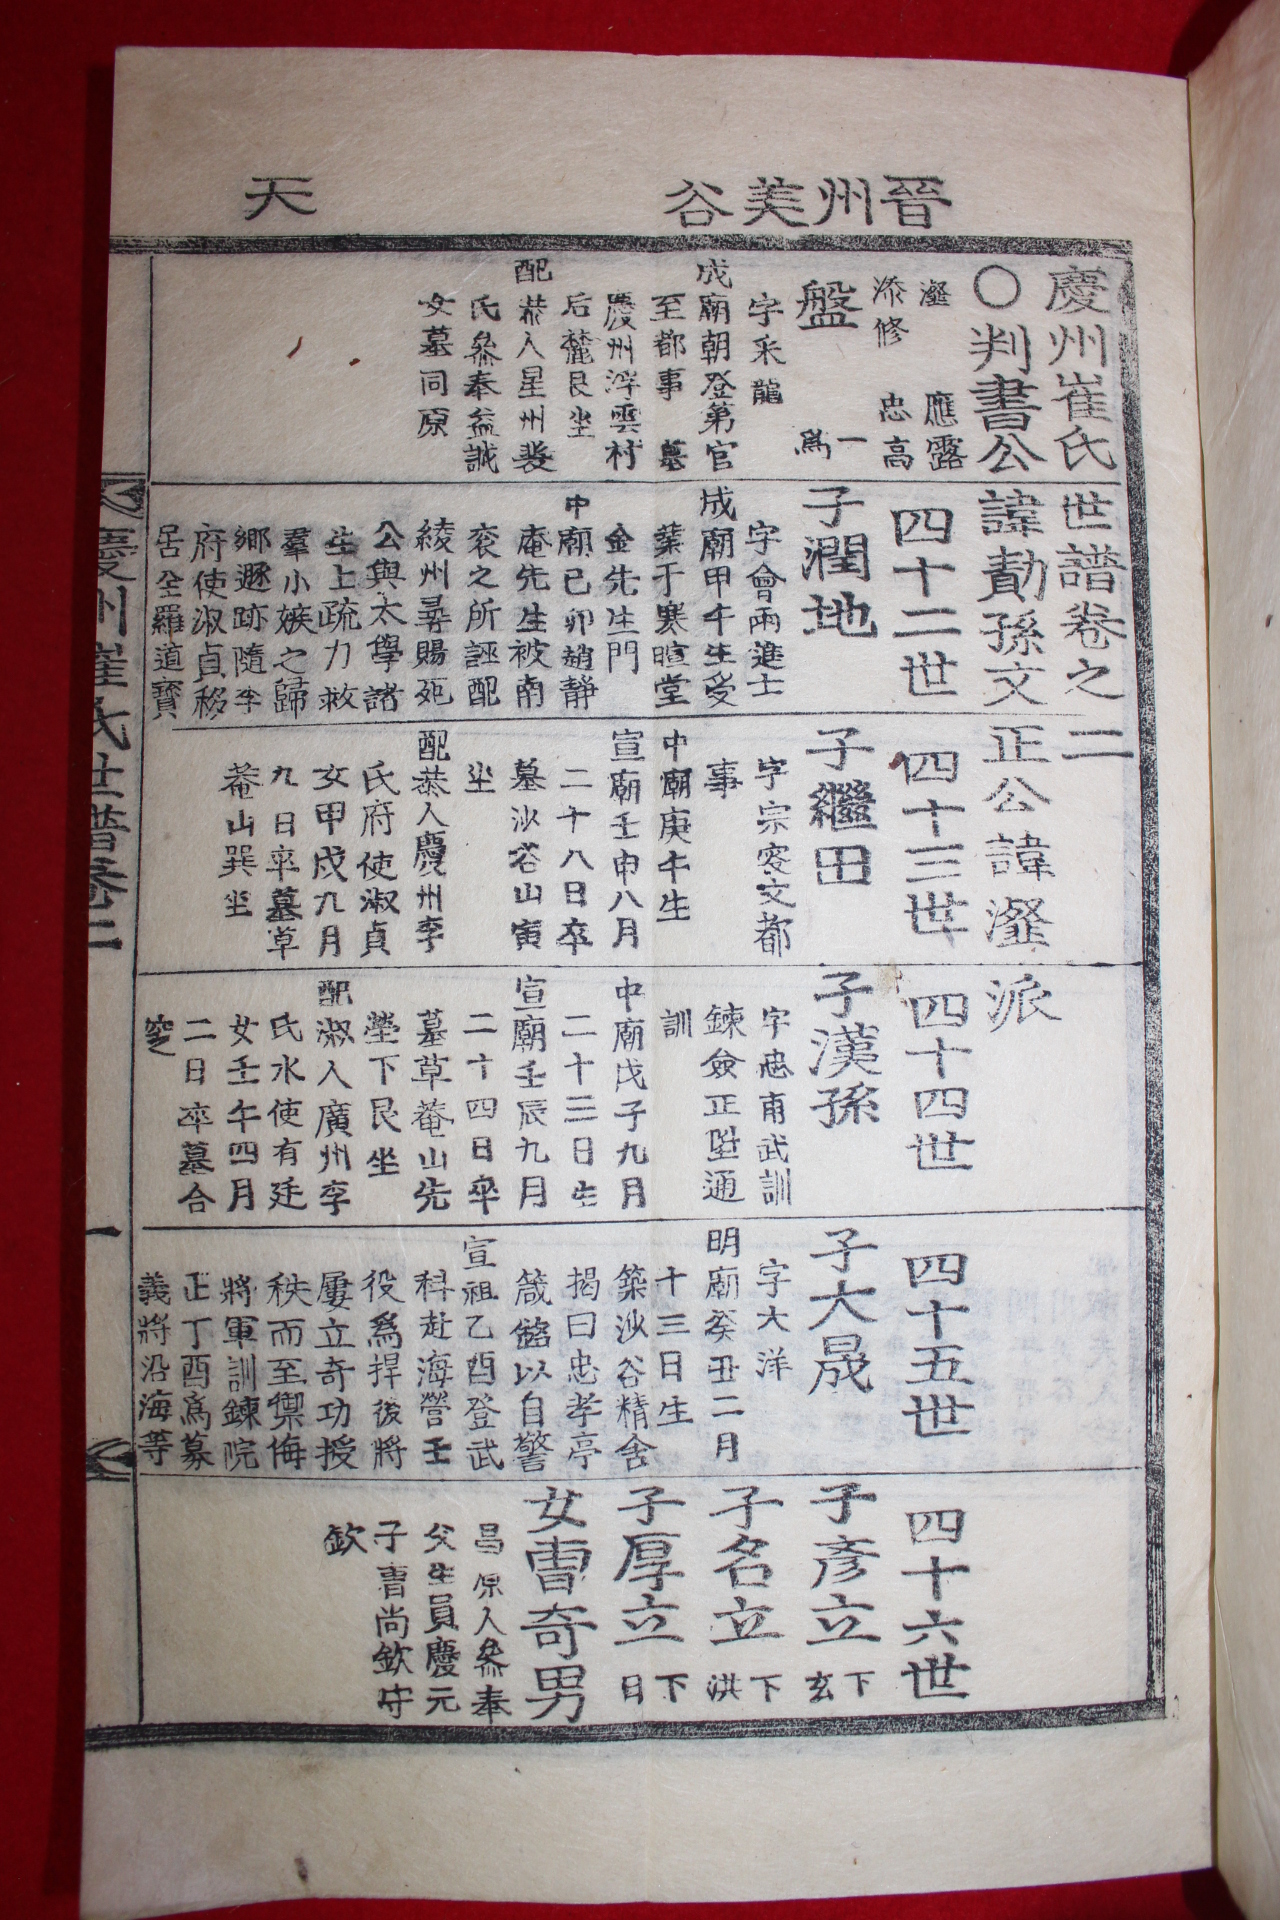 晉州美谷
天
慶州崔氏世譜卷之二
〇判書公諱勣孫文正公諱瀣派
瀣 應露
添修 忠高
四十二世
四十三世
四十四世
四十五世
四十六世
盤 一爲
字采龍
成廟朝登第官
至都事 墓
慶州浮雲村
后麓艮坐
配恭人星州裴
氏叅奉益誠
女墓同原
子潤地
字會兩進士
成廟甲午生受
業于寒暄堂
金先生門
中廟己卯趙靜
庵先生被南
袞之所誣配
綾州尋賜死
公與太學諸
生上疏力救
羣小嫉之歸
鄕遯跡隨李
府使淑貞移
居全羅道寶
子繼田
字宗容文都
事
中廟庚午生
宣廟壬申八月
二十八日卒
墓沙谷山寅
坐
配恭人慶州李
氏府使淑貞
女甲戌九月
九日卒墓草
菴山巽坐
子漢孫
字忠甫武訓
鍊僉正陞通
訓
中廟戊子九月
二十三日生
宣廟壬辰九月
二十四日卒
墓草菴山先
塋下艮坐
配淑人廣州李
氏水使有廷
女壬午四月
二日卒墓合
窆
子大晟
字大洋
明廟癸丑二月
十三日生
築沙谷精舍
揭曰忠孝亭
箴銘以自警
宣祖乙酉登武
科赴海營壬
役爲捍後將
屢立奇功授
秩而至禦侮
將軍訓鍊院
正丁酉爲募
義將沿海等
子彥立 下玄
子名立 下洪
子厚立 下日
女曺奇男
昌原人叅奉
父生員慶元
子曺尚欽守
欽
慶州崔氏世譜卷二
一